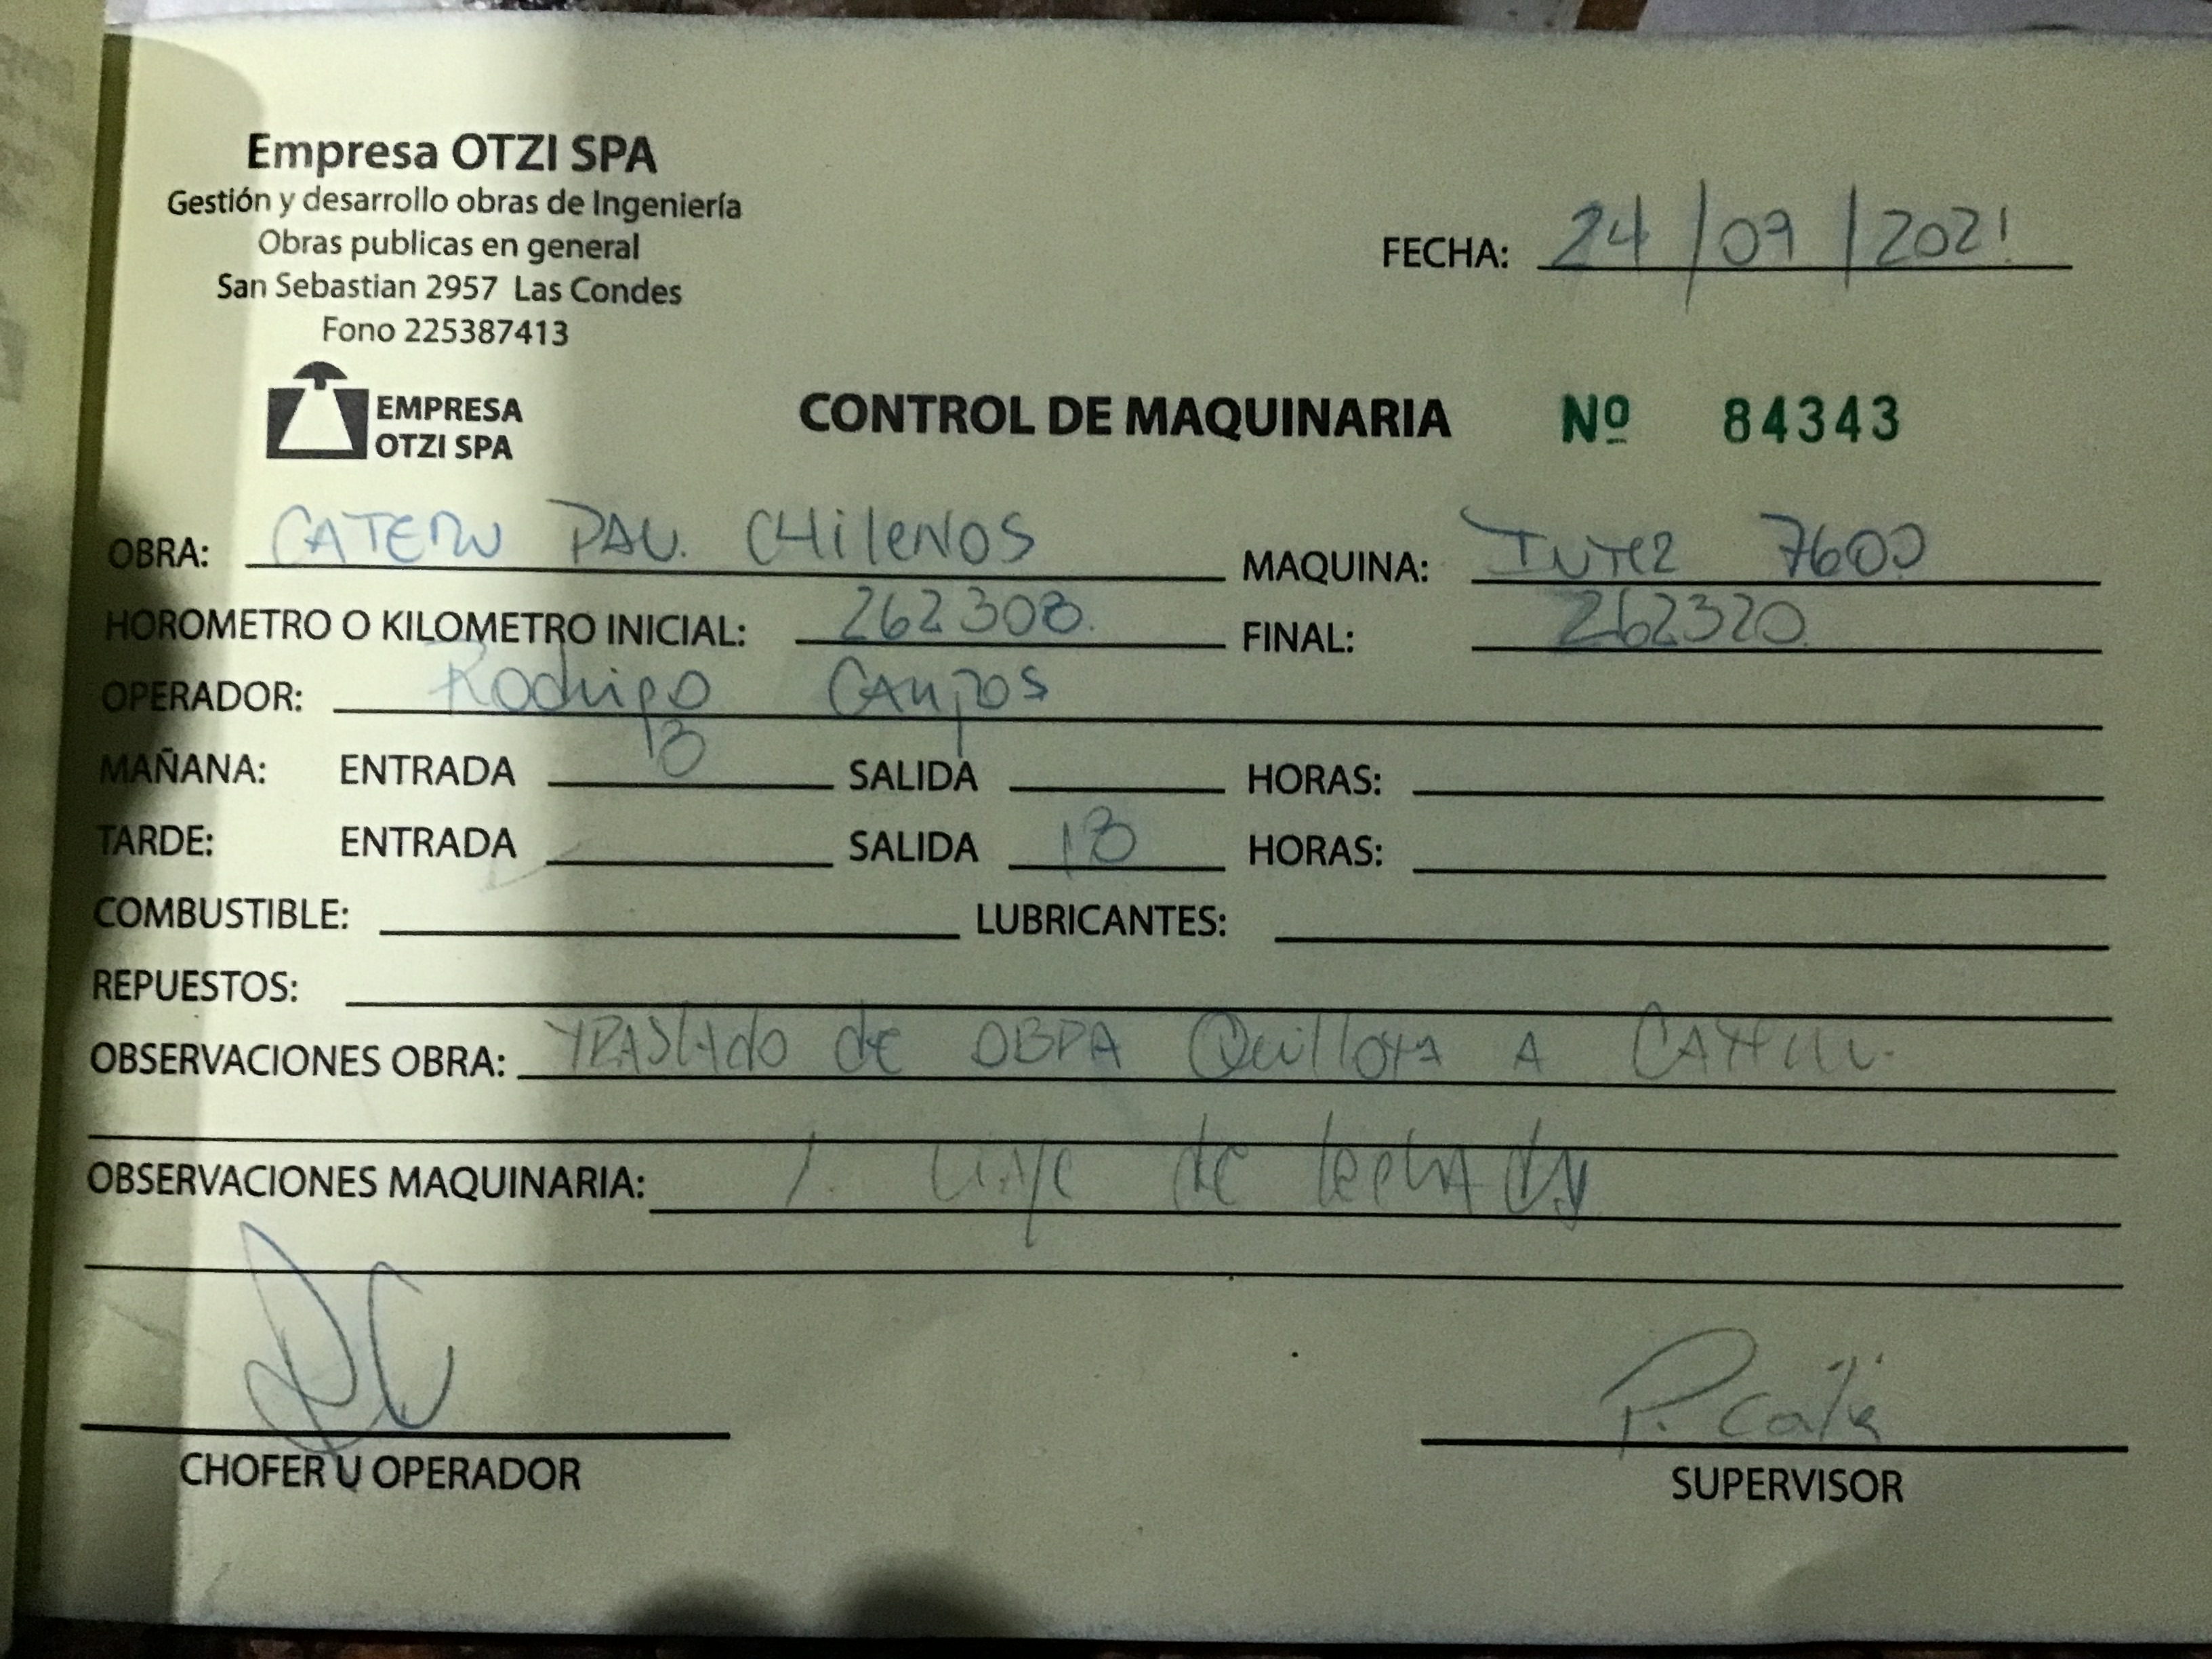 Empresa OTZI SPA
Gestión y desarrollo obras de Ingeniería
Obras publicas en general
San Sebastian 2957 Las Condes
Fono 225387413
FECHA: 24/09/2021
EMPRESA
OTZI SPA
CONTROL DE MAQUINARIA Nº 84343
OBRA: CATEMU PAV. CHileNOS MAQUINA: INTER 7600
HOROMETRO O KILOMETRO INICIAL: FINAL: 262320
OPERADOR: Rodrigo CAMpos
MAÑANA: ENTRADA SALIDA HORAS:
TARDE: ENTRADA SALIDA 18 HORAS:
COMBUSTIBLE: LUBRICANTES:
REPUESTOS:
OBSERVACIONES OBRA: TRASLAdo de OBRA Quillota A CATEMU.
OBSERVACIONES MAQUINARIA: 1. viaje de
CHOFER U OPERADOR
P.
SUPERVISOR